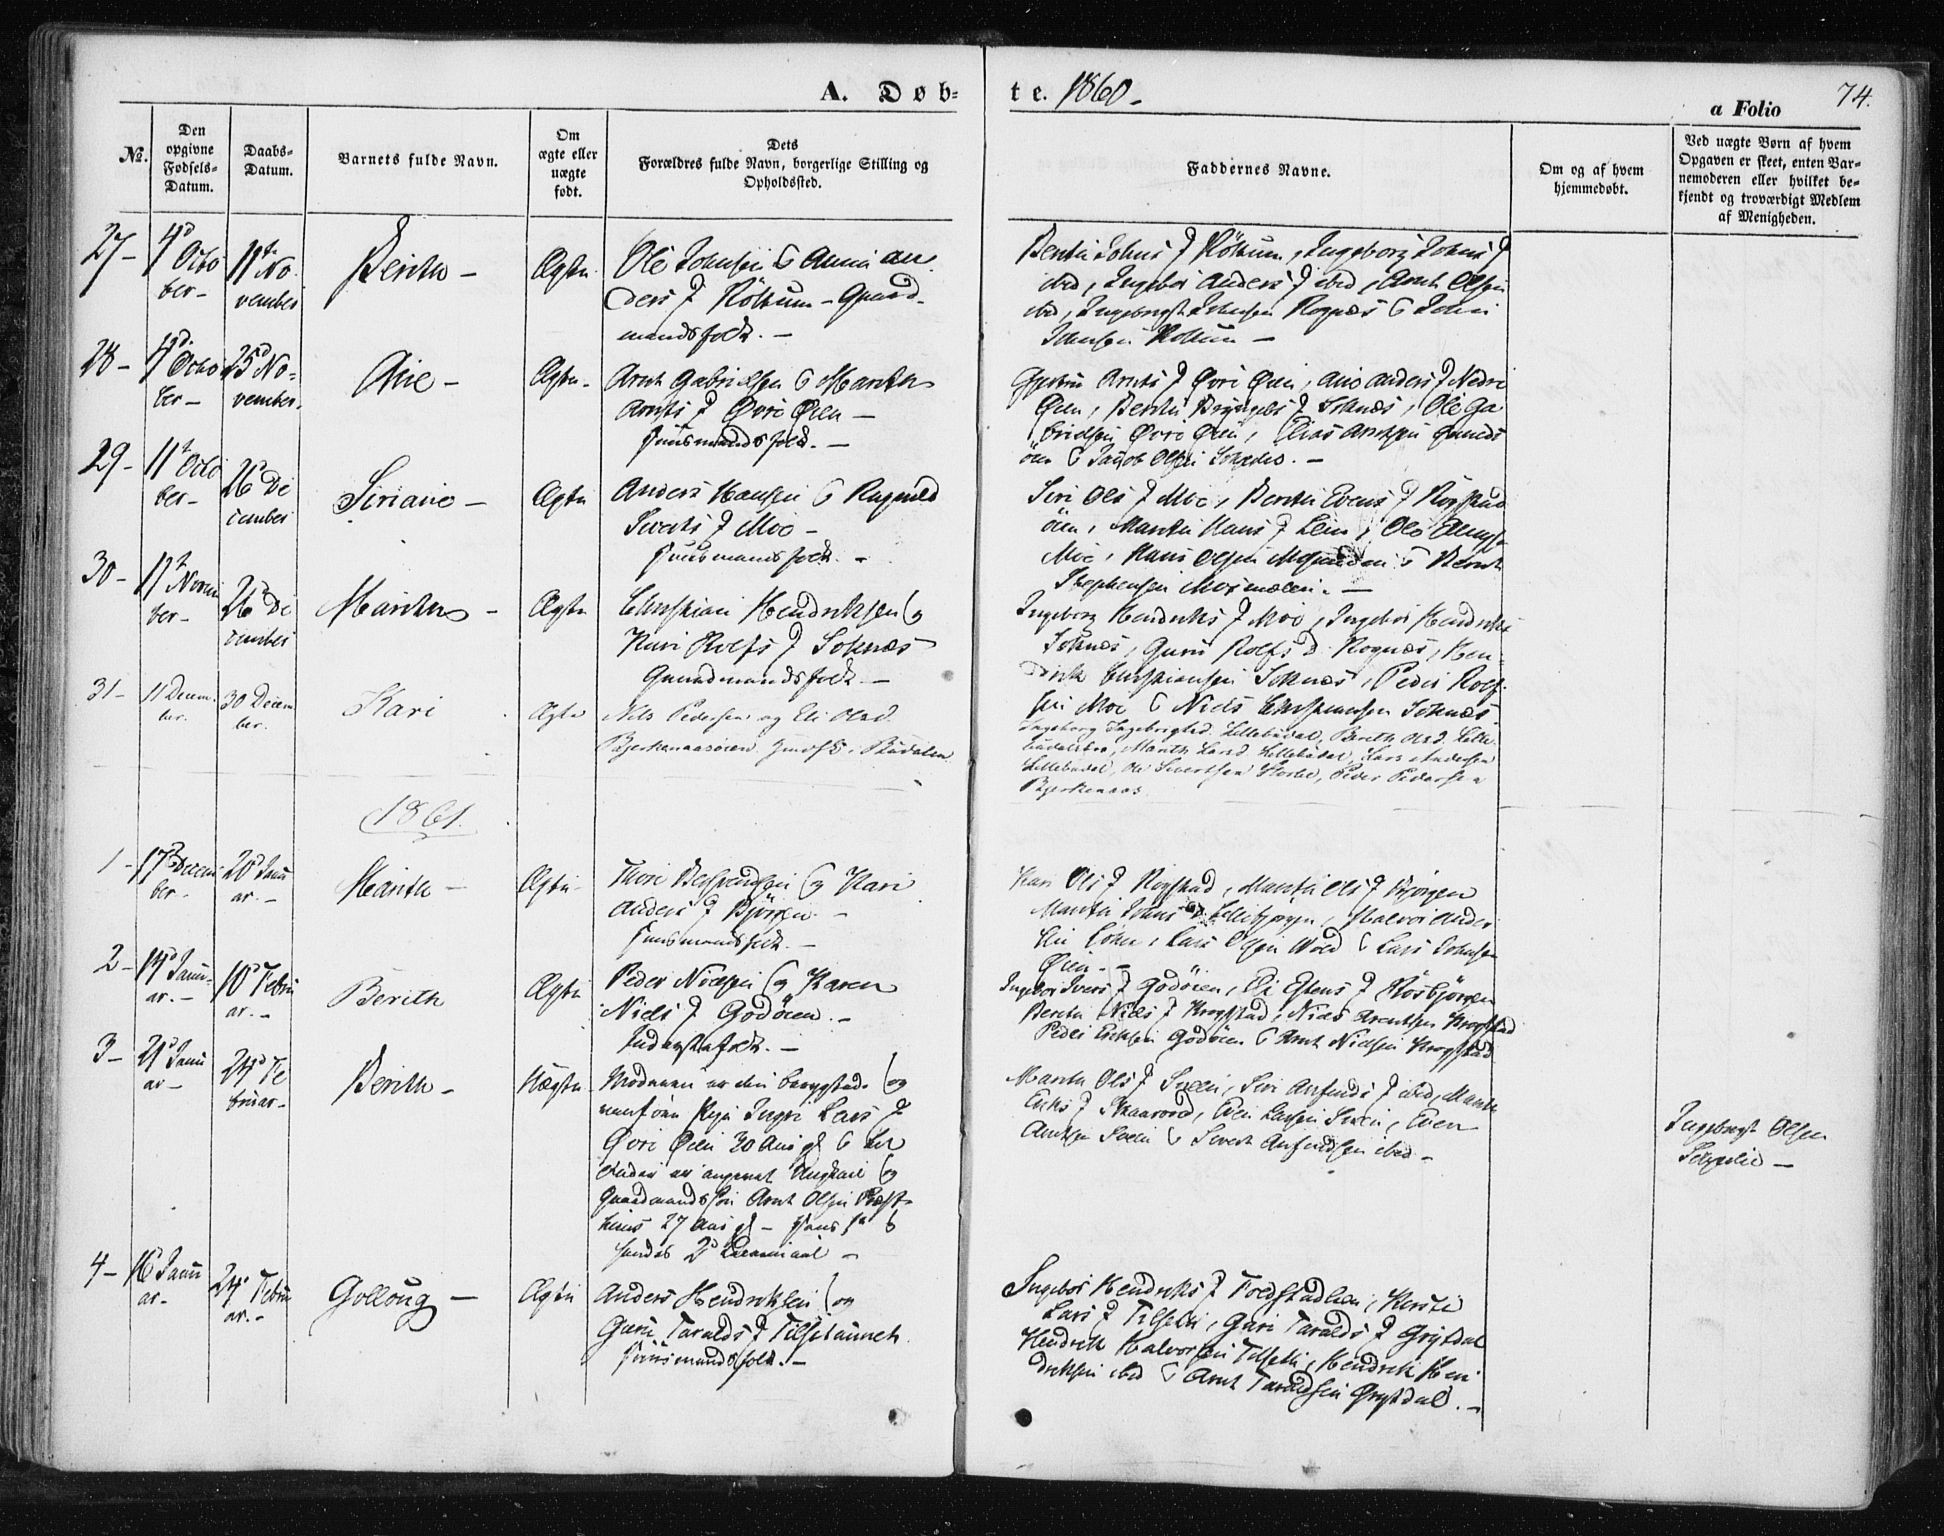 A. Døb-
te. 1860-
a Folio
74.
№.
Den
opgivne
Fødsels-
Datum.
Daabs-
Datum.
Barnets fulde Navn.
Om
ægte eller
uægte
født.
Dets
Forældres fulde Navn, borgerlige Stilling og
Opholdssted.
Faddernes Navne.
Om og af hvem
hjemmedøbt.
Ved uægte Børn af hvem
Opgaven er skeet, enten Bar-
nemoderen eller hvilket be-
kjendt og troværdigt Medlem
af Menigheden.
27-
Octo
ber-
11t No
vember
Berith -
Ægte
Ole Johnsen & Anne An
ders D Röttum - Gaard
mandsfolk. -
Berith Johns D Röttum, Ingeborg Johns D
ibid, Ingebor Anders D ibid, Arnt Olsen
ibid, Ingebregt Johnsen Rognæs & John
Johnsen Röttum -
28-
Octo
ber-
25d No-
vember.
Ane -
Ægte-
Arnt Gabrielsen & Marith
Arnts D Øvre Øien -
Huusmandsfolk. -
Arnts D Øvre Øien, Ane Anders D Nedre
Øien, Berith D Soknæs, Ole Ga
brielsen Øvre Øien, Elias Arntsen
öen & Jacob Olsen Soknæs. -
29-
11t Octo
ber-
26d De
cember
Siriane -
Ægte
Anders Hansen & Ragnild
Siverts D Moe -
Huusmandsfolk. -
Siri Ols D Moe, Berith Evens D Rogstad
öien, Marith Hans D Leen, Ole
Moe, Hans Olsen & Bernt
Stephensen
30-
Novem
ber-
26d De
cember
Marith -
Ægte
Christian Hendriksen og
Kari Rolfs D Soknæs
Gaardmandsfolk. -
Ingeborg Hendriks D Moe, Ingebor Hendriks
Soknæs, Guru Rolfs D Rognæs, Hen-
drik Christiansen Soknæs, Peder Rolf
sen Moe & Niels Christiansen Soknæs
31-
11 Decem
ber.
30 Decem
ber.
Kari
Ægte
Nils Pedersen og Eli Olsd.
Bjerkenaasöien Gmdf. Budalen
Ingeborg Ingebrigtsd. Lillebudal, Berith Olsd. Lille
budalsbro, Marith Larsd. Lillebudal, Lars Andersen
Lillebudal, Ole Sivertsen Storbu, Peder Pedersen
Bjerkenaas
1861.
1-
17d Decem
ber-
20d Janu
ar. -
Marith -
Ægte
Thore Bersvendsen og Kari
Anders D Bjørgen -
Huusmandsfolk. -
Kari Ols D Rogstad, Marith Ols D Bjørgen
Marith Johns D Lillebjørgen, Halvor Ander
sen Løhre, Lars Olsen Wold & Lars Johnsen
Øien. -
2-
Janu-
ar. -
10d Febru
ar. -
Berith
Ægte
Peder Nielsen og Karen
Niels D Godöien. -
Inderstfolk. -
Ingebor Ivers D Godöien, Eli Estens D Rösbjørgen
Berith Niels D Krogstad, Niels Arentsen Krogstad
Peder Eriksen Godöien & Arnt Nielsen Krogstad
3-
21d Janu
ar-
24d Fe
bruar-
Berith -
Uægte
Moderen er den og
Pige Ingri Lars D
Øvre Øien 30 Aar gl & Ud
Fader er angivet Ungkarl og
Gaardmandssön Arnt Olsen Præst-
huus 27 Aar gl - Hans 1t &
hendes 2d Leiermaal -
Marith Ols D Sveen, Siri Arfinds D ibid, Marith
Eriks D Skaarvold, Even Larsen Sveen, Even
Arntsen Sveen & Sivert Arfindsen ibid -
Ingebregt Olsen
4-
16d Janu
ar-
24d Febru
ar. -
Golloug -
Ægte
Anders Hendriksen og
Guru Taralds D Tilsetaunet
Huusmandsfolk. -
Ingebor Hendriks D Foldstadlien, Kersti
Lars D Tilseth, Guri Taralds D Grytdal
Hendrik Halvorsen Tilseth, Hendrik Hen
driksen ibid & Arnt Taraldsen Grytdal. -